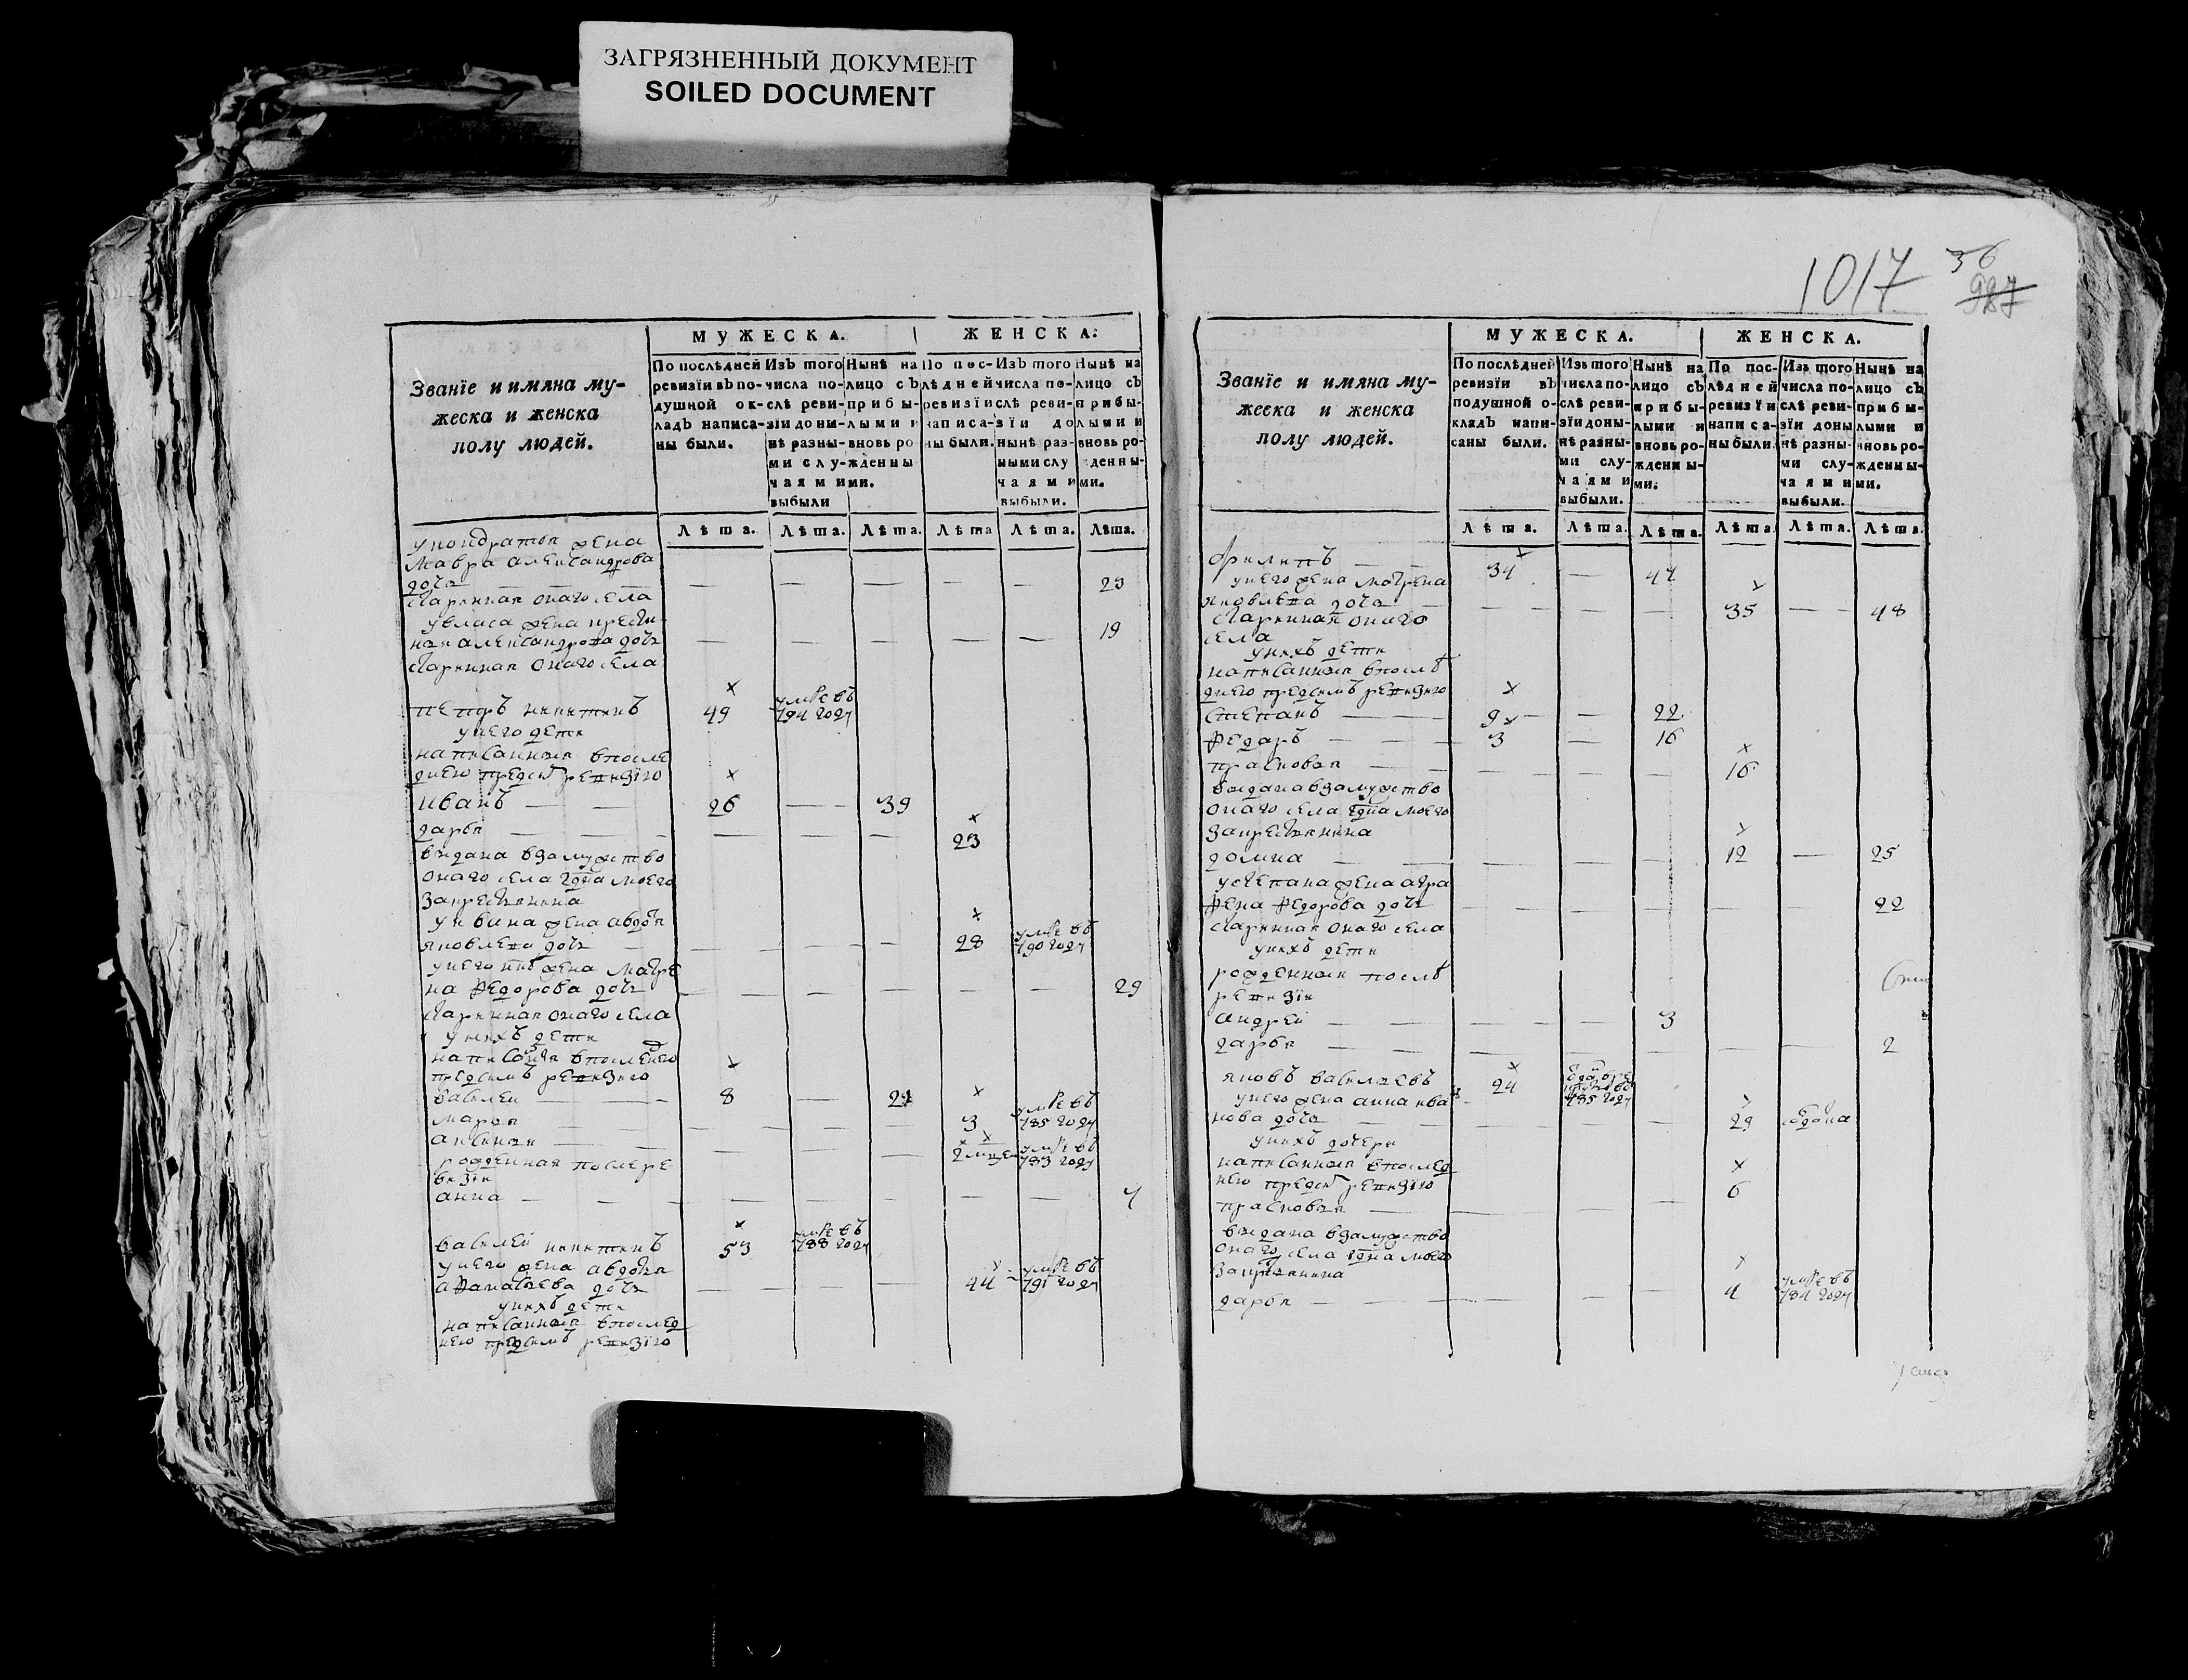 ЗАГРЯЗНЕННЫЙ ДОКУМЕНТ
SOILED DOCUMENT
МУЖЕСКА. ЖЕНСКА:
Званїе и имяна му-
жеска и женска
полу людей.
По послѣдней
ревизїи въ по-
душной ок-
ладъ написа-
ны были.
Изъ того
числа по-
слѣ реви-
зїи доны-
нѣ разны-
ми слу-
чаями
выбыли
Нынѣ на
лицо съ
прибы-
лыми и
вновь ро
жденны
ми.
По пос-
лѣдней
ревизїи
написа-
ны были.
Изъ того
числа по-
слѣ реви-
зїи до
нынѣ раз-
ными слу
чаями
выбыли.
Нынѣ на
лицо съ
прибы-
лыми и
вновь ро-
денны-
ми.
Лѣта. Лѣта. Лѣта. Лѣта Лѣта. Лѣта.
укондратья жена
мавра александрова
дочь — — — — — 23
старинная онаго села
увласа жена кристи-
ная александрова дочь — — — — — 19
старинная онаго села
петръ никитинъ 49 умре въ 794 году
унего дети
написанныя впосле
днею предсимъ ревизїю
иванъ — — 26 — 39
дарья — — — — — 23
выдана взамужство
онаго села гдна моего
закрестьянина
уивана жена авдотья
яковлева дочь — — — — 28 умре въ 790 году
унего ннѣ жена матре
на федорова дочь — — — — — 29
старинная онаго села
унихъ дети
написаныя впоследнею
предсимъ ревизию
василеи — — 8 — 21
марья — — — — 3 умре въ 785 году
аксинья — — — — 2 мцеи умре въ 783 году
рожденная послере
визїи
анна — — — — — — — 4
василеи никитинъ 53 умре въ 788 году
унего жена авдотья
афанасьева дочь — — — 44 умре въ 791 году
унихъ дети
написанныя впослед
нею предсимъ ревизїю
1017 36
987
МУЖЕСКА. ЖЕНСКА.
Званїе и имяна му-
жеска и женска
полу людей.
По послѣдней
ревизїи въ
подушной о-
кладъ напи-
саны были.
Изъ того
числа по-
слѣ реви-
зїи доны-
нѣ разны-
ми слу-
чаями
выбыли.
Нынѣ на
лицо съ
прибы-
лыми и
вновь ро-
жденны-
ми.
По пос-
лѣдней
ревизїи
написа-
ны были.
Изъ того
числа по-
слѣ реви-
зїи доны
нѣ разны-
ми слу-
чаями
выбыли.
Нынѣ на
лицо съ
прибы-
лыми и
вновь ро-
жденны-
ми.
Лѣта. Лѣта. Лѣта. Лѣта Лѣта. Лѣта.
филипъ — — 34 — 47
унего жена матрена
яковлева дочь — — — — — 35 — 48
старинная онаго
села
унихъ дети
написанныя впослѣ
днею предсимъ ревизию
степанъ — — 9 — — 22
федаръ — — 3 — 16
прасковья — — — — — 16
выдана взамужство
онаго села гдна моего
закрестьянина
домна — — — — — 12 — 25
устепана жена агра
фена федорова дочь — — — — — 22
старинная онаго села
унихъ дети
рожденныя послѣ
ревизїи
андреи — — — — 3
дарья — — — — — — — 2
яковъ васильевъ 24 785 году
унего жена анна ива
нова дочь — — — — 29
унихъ дочери
написанныя впослед
нею предсимъ ревизїю
прасковья — — — — 6
выдана взамужство
онаго села гдна моего
закрестьянина
дарья — — — — — 4 умре въ 784 году